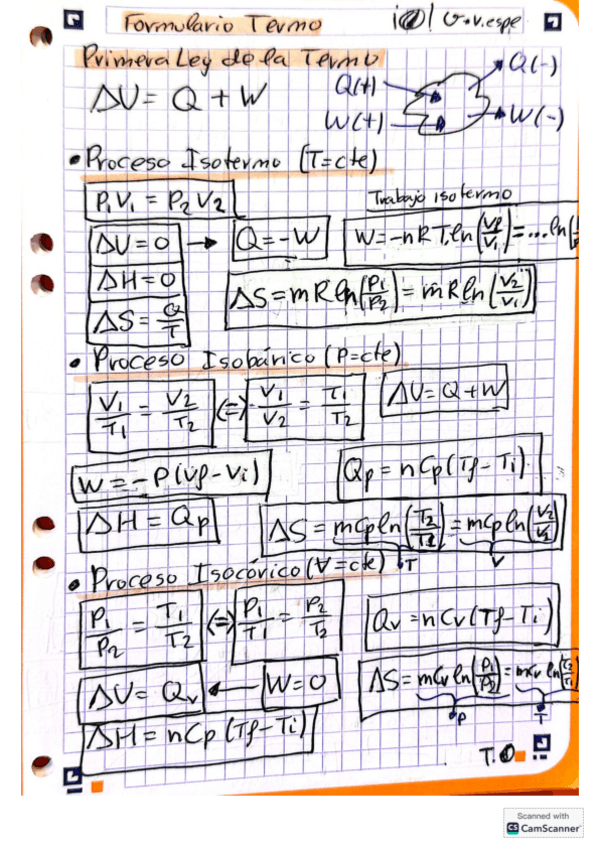 Formulario Termo
Primera Ley de la Termo
ΔU = Q + W
Q(+)
W(+)
Q(-)
W(-)
• Proceso Isotermo (T=cte)
P₁V₁ = P₂V₂
Trabajo isotermo
ΔU = 0 → Q = -W
W = -nRT·ln(Vf/V₁) = ...ln(
ΔH = 0
ΔS = Q/T
ΔS = mR ln(P₁/P₂) = mR ln(V₂/V₁)
• Proceso Isobárico (P=cte)
V₁/T₁ = V₂/T₂ <=> V₁/V₂ = T₁/T₂
ΔU = Q + W
W = -P(Vf - Vi)
Qp = nCp(Tf - Ti)
ΔH = Qp
ΔS = mCp ln(T₂/T₁) = mCp ln(V₂/V₁)
T
V
• Proceso Isocórico (V=cte)
P₁/P₂ = T₁/T₂ <=> P₁/T₁ = P₂/T₂
Qv = nCv(Tf - Ti)
ΔU = Qv ← W = 0
ΔS = mCv ln(P₁/P₂) = mCv ln(T₂/T₁)
P
T
ΔH = nCp(Tf - Ti)
Scanned with
CS CamScanner